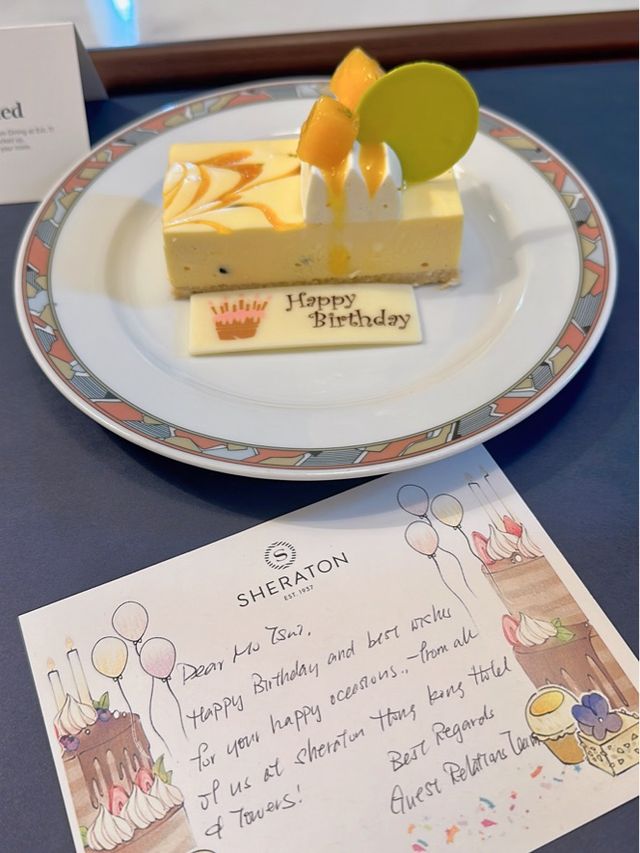 Happy
Birthday
S
SHERATON
EST. 1937
Dear Ms Tsui,
Happy Birthday and best wishes
for your happy occasions.. - from all
of us at Sheraton Hong Kong Hotel
& Towers!
Best Regards
Guest Relations Team